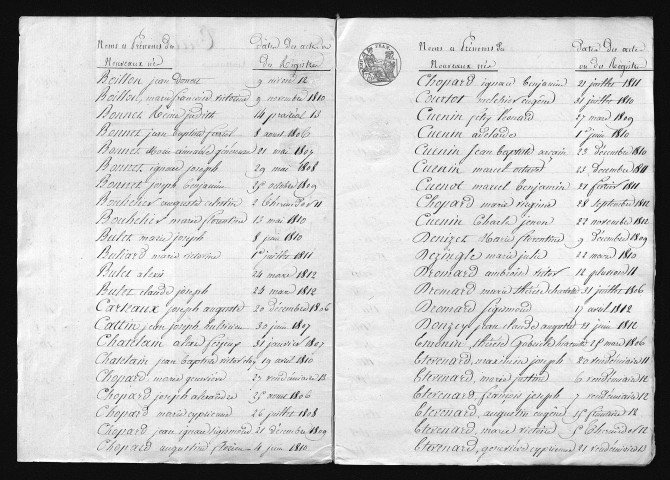 Noms et Prénoms des Date des actes ou
Nouveaux nés du Registre
Boillon jean Donat 9 nivose 12
Boillon marie françoise victoire 9 novembre 1810
Bonnet Reine judith 14 prairial 13
Bonnet jean baptiste 8 aout 1806
Bonnet Marie aimable généreuse 21 mai 1807
Bonnet ignace joseph 29 mai 1808
Bonnet joseph benjamin 25 octobre 1809
Bouhelier auguste célestin 2 thermidor 11
Bouhelier marie florentine 13 mai 1810
Bulet marie joseph 8 juin 1810
Buliard marie victoire 1er juillet 1811
Bulet alexis 24 mars 1812
Bulet claude joseph 24 mars 1812
Carteaux joseph auguste 20 décembre 1806
Cattin jean joseph 30 juin 1807
Chatelain aimé 31 janvier 1807
Chatelain jean baptiste victor 19 avril 1810
Chopard marie geneviève 23 vendémiaire 13
Chopard joseph alexandre 25 aout 1806
Chopard marie cyprienne 26 juillet 1808
Chopard jean ignace sigismond 21 décembre 1809
Chopard augustine 4 juin 1810
Noms et Prénoms des Date des actes
Nouveaux nés ou du Registre
Chopard ignace benjamin 21 juillet 1811
Courtot melchior eugène 31 juillet 1810
Cuenin felix léonard 27 mars 1809
Cuenin adelaide 1er juin 1810
Cuenin jean baptiste 23 décembre 1810
Cuenin marcel octave 13 décembre 1811
Cuenot marcel benjamin 21 février 1811
Chopard marie virginie 28 septembre 1812
Cuenin Charle 22 novembre 1812
Denizet Marie florentine 9 décembre 1809
Dezingle marie julie 22 mars 1810
Dromard ambroise victor 12 pluviose 11
Dromard marie thérèse charlotte 31 juillet 1806
Dromard sigismond 17 avril 1812
Donzey jean claude auguste 21 juin 1812
Emonin thérèse Gabriele 25 mars 1806
Etevenard maximien joseph 20 vendémiaire 11
Etevenard marie justine 6 vendémiaire 12
Etevenard françois joseph 7 vendémiaire 12
Etevenard augustin eugène 15 frimaire 12
Etevenard marie victoire 5 thermidor 12
Etevenard geneviève cyprienne 21 vendémiaire 13